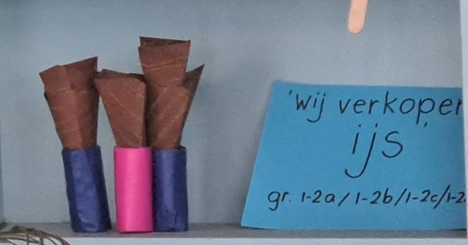 'wij verkopen
ijs'
gr. 1-2a/1-2b/1-2c/1-2